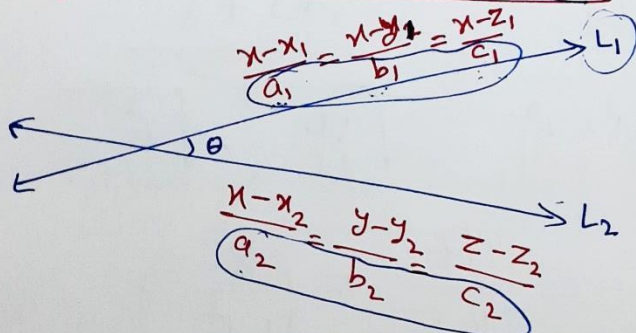 x-x₁/a₁ = x-y₁/b₁ = x-z₁/c₁
L₁
θ
L₂
x-x₂/a₂ = y-y₂/b₂ = z-z₂/c₂